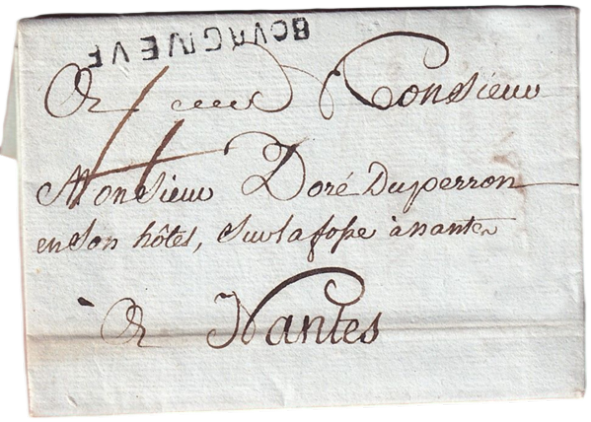 BOURGNEUF
A Monsieur
4
Monsieur Doré Duperron
en son hôtel, sur la fosse à nantes
A Nantes